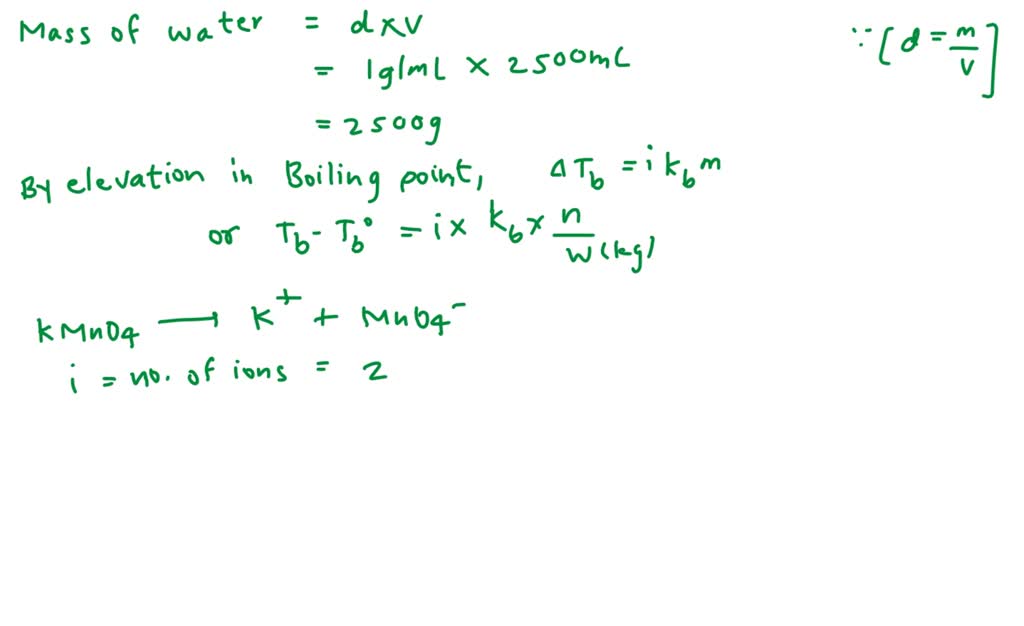 Mass of water = d×v ∵ [d = m/v]
= 1g/mL × 2500mL
= 2500g
By elevation in Boiling point, ΔT_b = i k_b m
or T_b - T_b° = i × k_b × n/W(kg)
KMnO4 ⟶ K⁺ + MnO4⁻
i = no. of ions = 2